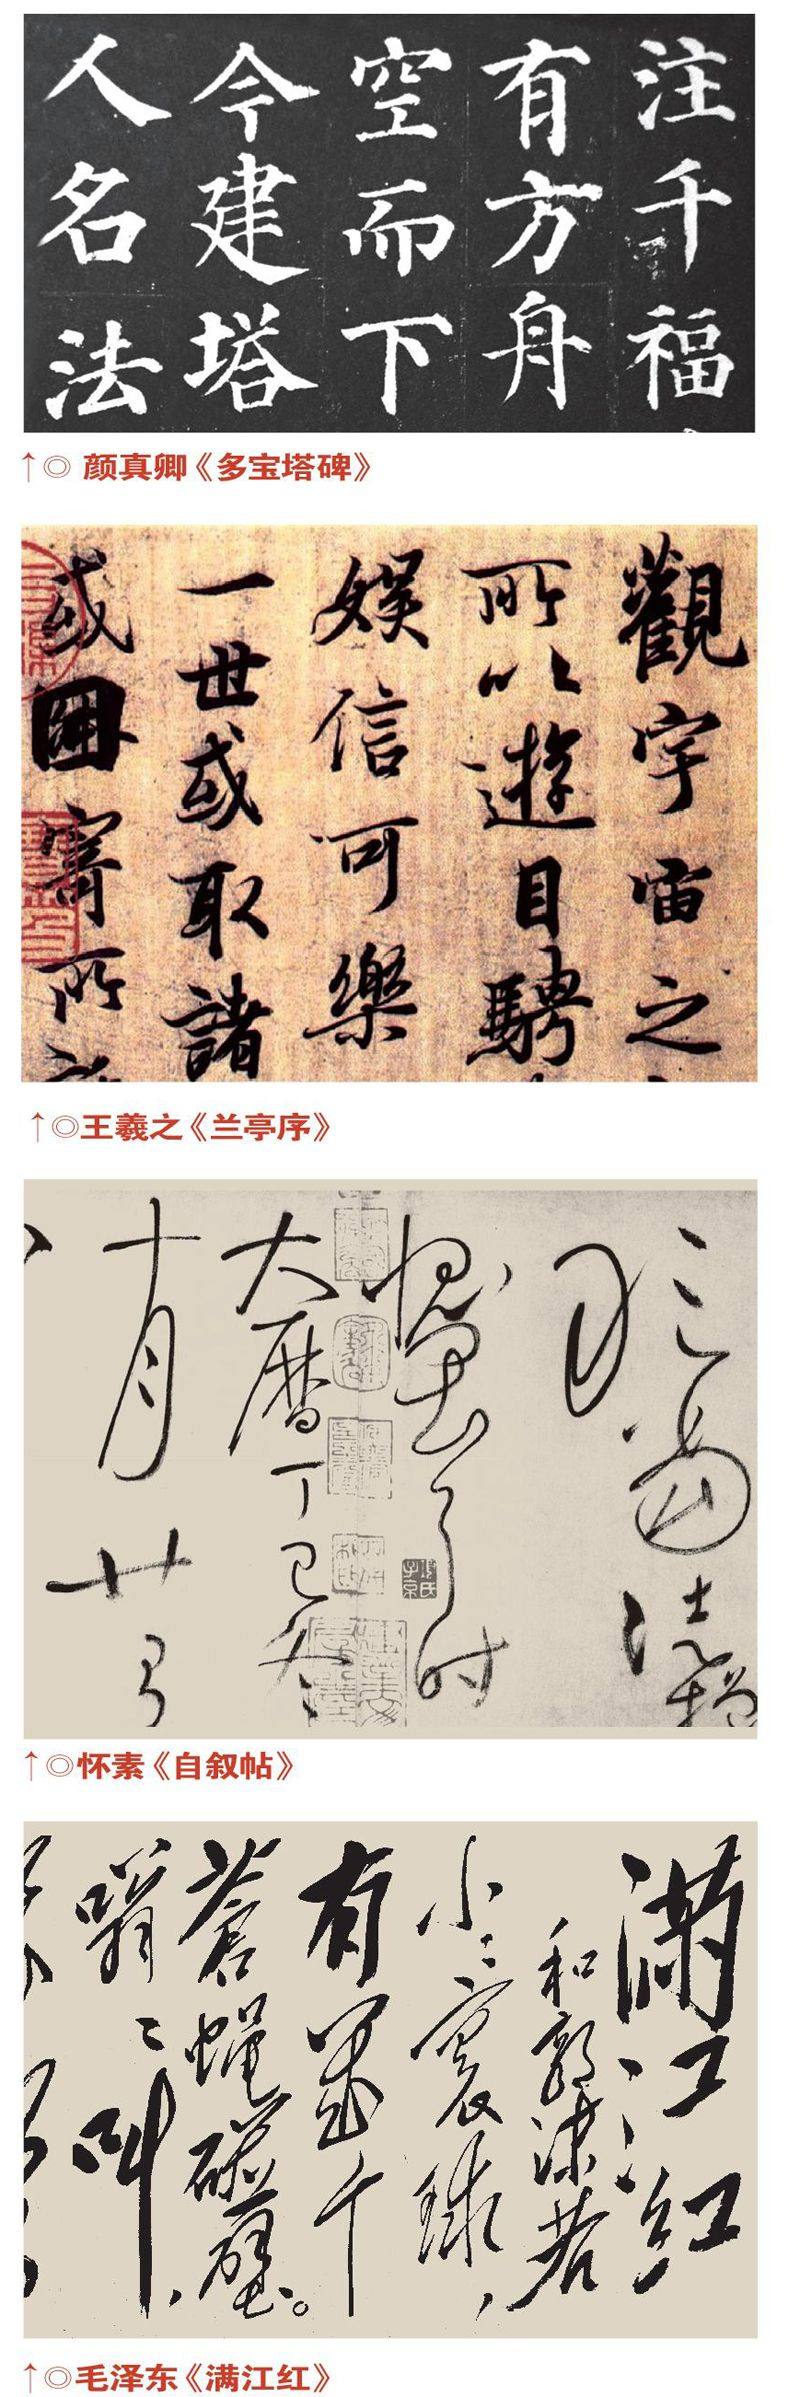 注千福
有方舟
空而下
今建塔
人名法
↑◎ 颜真卿《多宝塔碑》
觀宇宙之
所以遊目騁
娱信可樂
一世或取諸
或因寄所
↑◎王羲之《兰亭序》
大曆丁巳冬
十月廿
↑◎怀素《自叙帖》
满江红
和郭沫若
小小寰球，
有几个
苍蝇碰壁。
嗡嗡叫，
↑◎毛泽东《满江红》